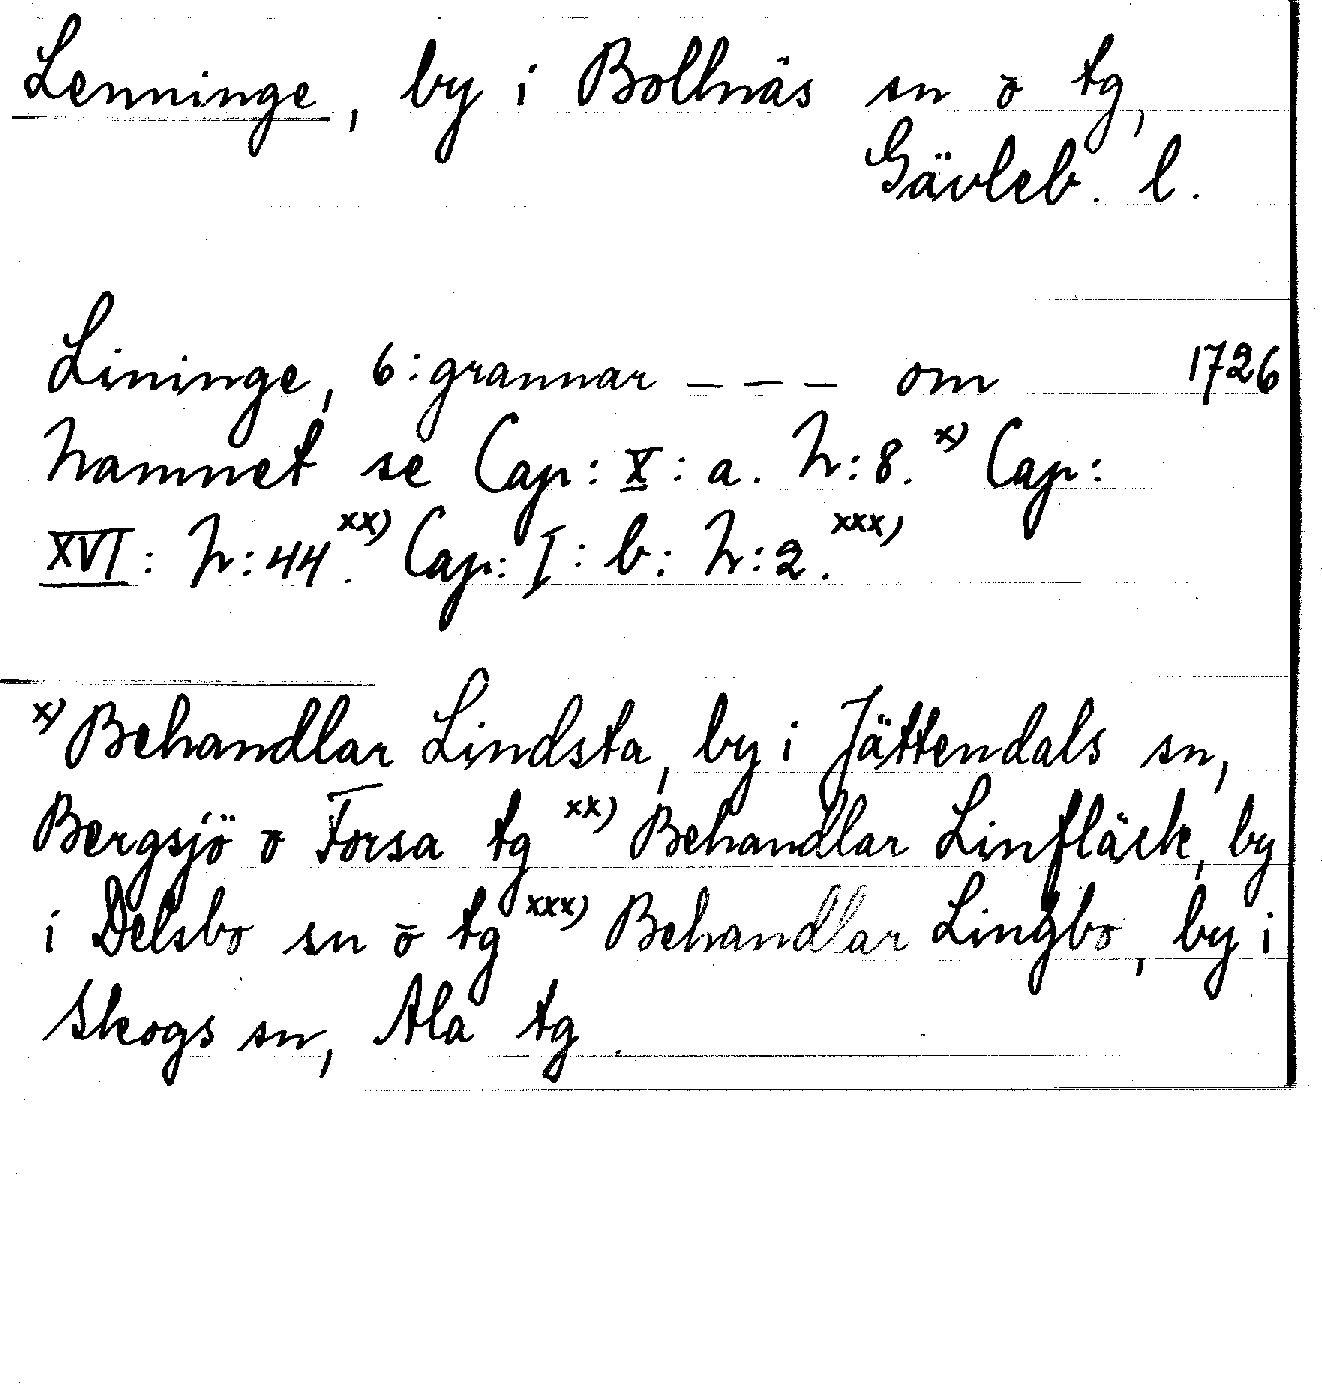 Lenninge, by i Bollnäs sn o tg,
Gävleb. l.
Lininge, 6:grannar - - - om 1726
Namnet se Cap: X: a. N:8. x) Cap:
XVI: N:44. xx) Cap: I: b: N:2. xxx)
x) Behandlar Lindsta, by i Jättendals sn,
Bergsjö o Forsa tg xx) Behandlar Linfläck, by
i Delsbo sn o tg xxx) Behandlar Lingbo, by i
Skogs sn, Ala tg.